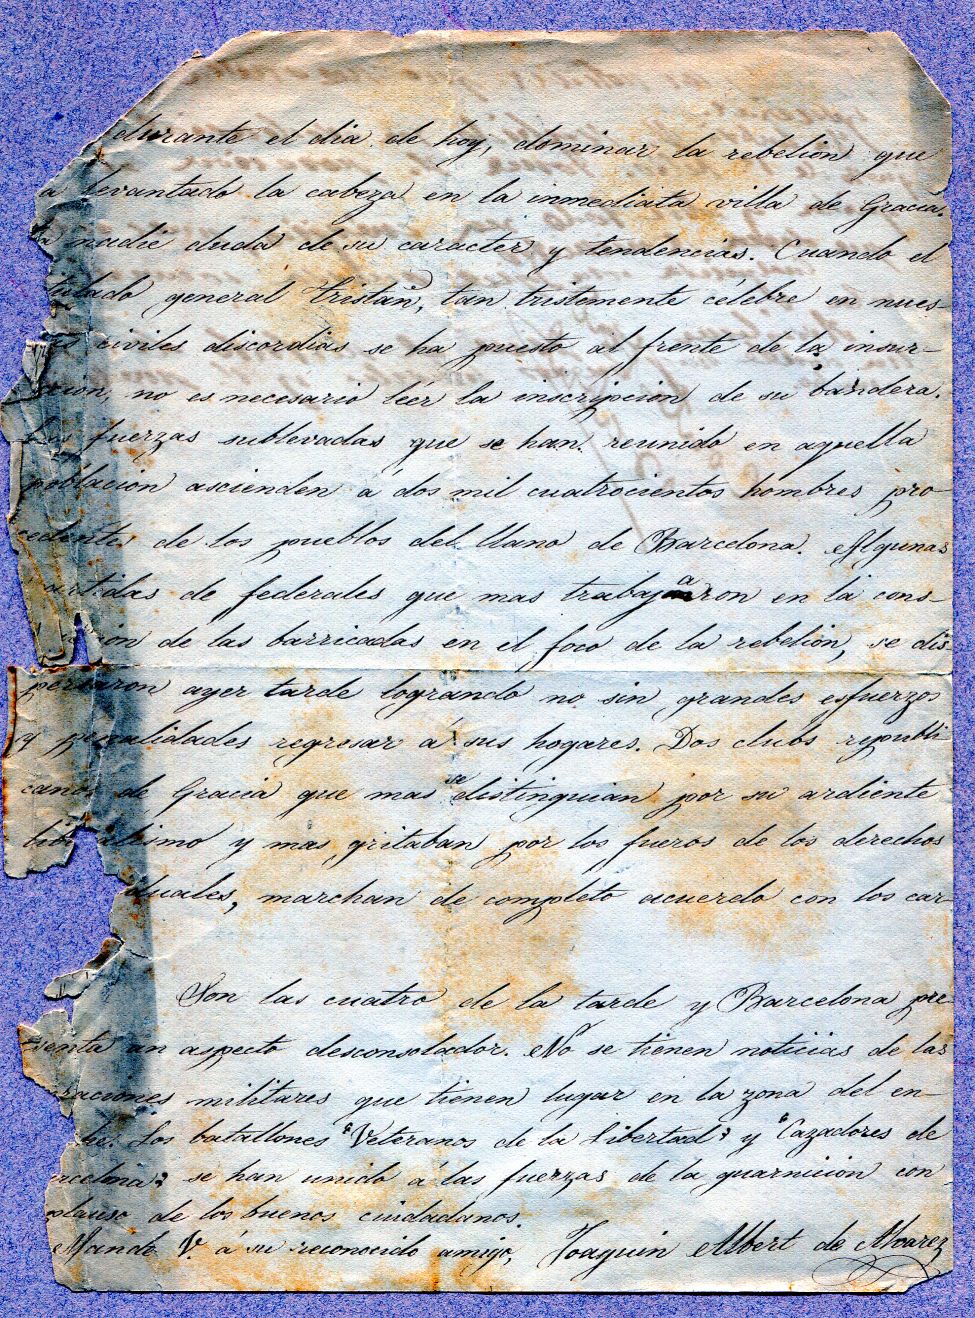 durante el dia de hoy, dominar la rebelion que
a levantado la cabeza en la inmediata villa de Gracia.
nadie duda de su caracter y tendencias. Cuando el
titulado general Tristan, tan tristemente célebre en nues-
civiles discordias se ha puesto al frente de la insur-
cion, no es necesario léer la inscripcion de su bandera.
Las fuerzas sublevadas que se han reunido en aquella
poblacion ascienden a dos mil cuatrocientos hombres pro-
cedentes de los pueblos del llano de Barcelona. Algunas
artidas de federales que mas trabajaron en la cons-
cion de las barricadas en el foco de la rebelion, se dis
persaron ayer tarde logrando no sin grandes esfuerzos
y penalidades regresar á sus hogares. Dos clubs republi
canos de Gracia que mas se distinguian por su ardiente
liberalismo y mas gritaban por los fueros de los derechos
duales, marchan de completo acuerdo con los car-
Son las cuatro de la tarde y Barcelona pre
senta un aspecto desconsolador. No se tienen noticias de las
raciones militares que tienen lugar en la zona del en-
he. Los batallones "Veteranos de la Libertad" y "Cazadores de
rcelona" se han unido á las fuerzas de la guarnicion con
plauso de los buenos ciudadanos.
Mande V. á su reconocido amigo, Joaquin Albert de Alvarez